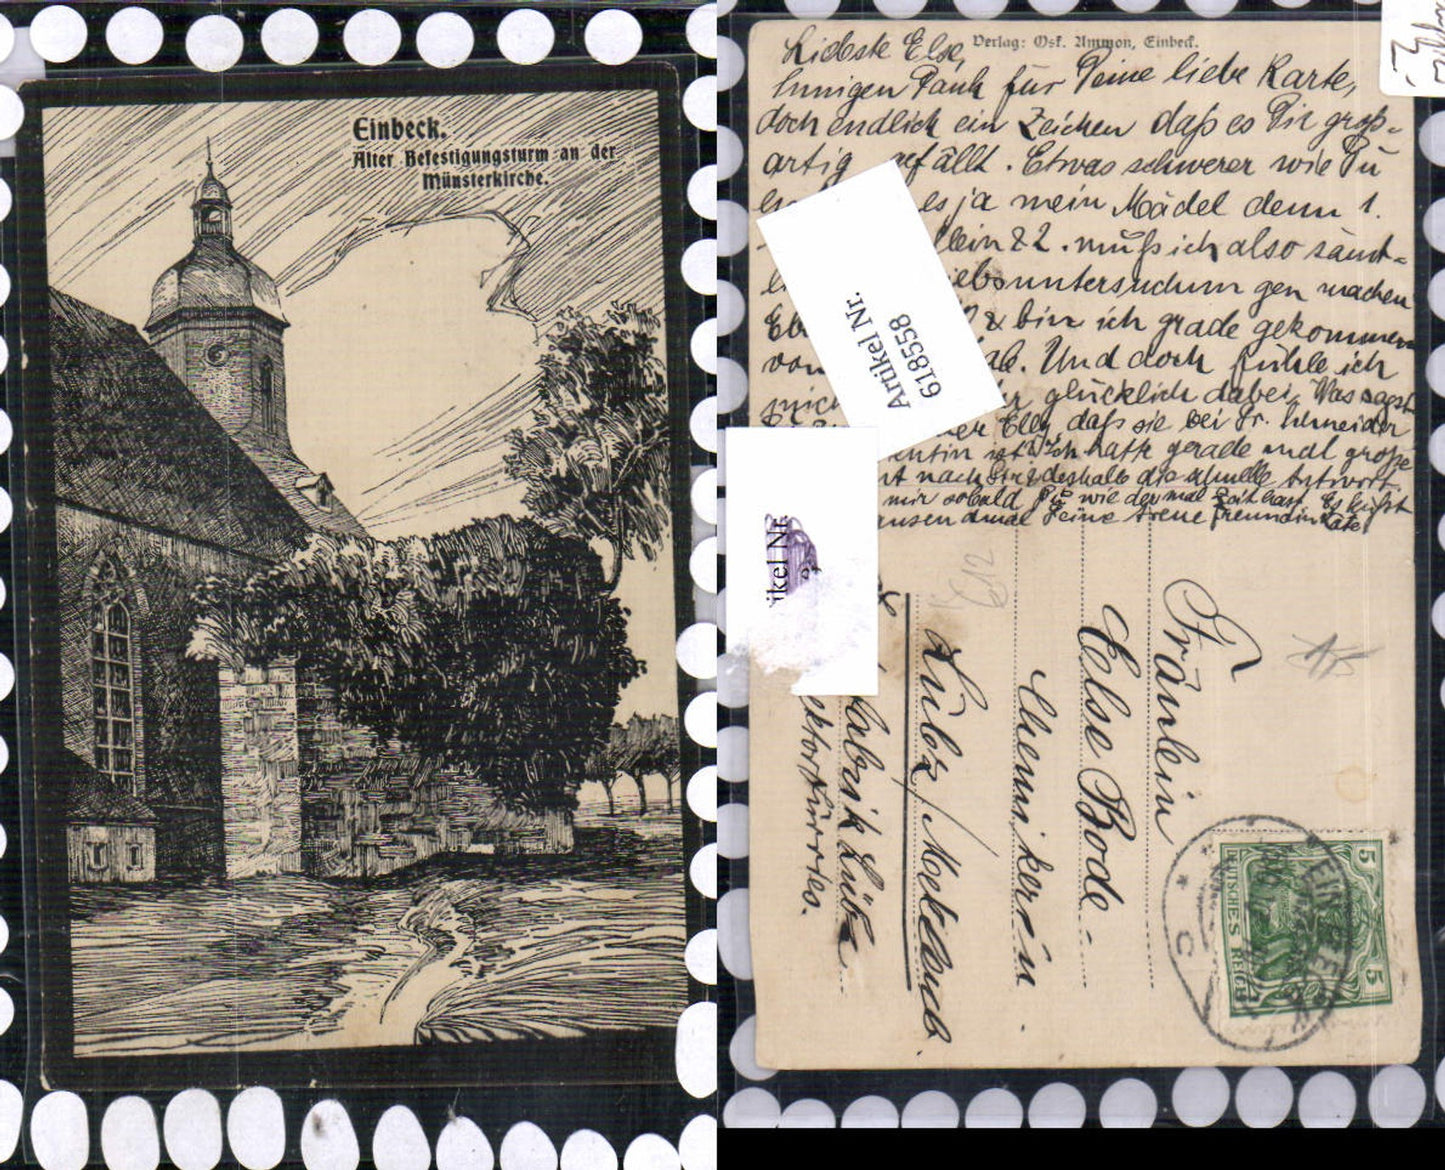 Einbeck.
Alter Befestigungsturm an der
Münsterkirche.
Verlag: Osk. Ammon, Einbeck.
Liebste Else,
Innigen Dank für Deine liebe Karte,
doch endlich ein Zeichen daß es Dir groß-
artig gefällt. Etwas schwerer wie Du
es ja mein Mädel denn 1.
82. muß ich also sämt-
untersuchungen machen
& bin ich grade gekommen
von ab. Und doch fühle ich
mich glücklich dabei. Was sagst
Elly, daß sie bei Dr. Schneider
ist? Ich hatte gerade große
nach deshalb die schnelle Antwort.
mir sobald Du wie der mal Zeit hast. Es küßt
Deine treue Freundin Käte
Artikel Nr.
618558
ikel Nr
Fräulein
Else Bode.
Chemikerin.
Lübz/Mecklenb.
abrik Lübz
ektor Fürries.
612
DEUTSCHES REICH
5
5
EINBECK
C